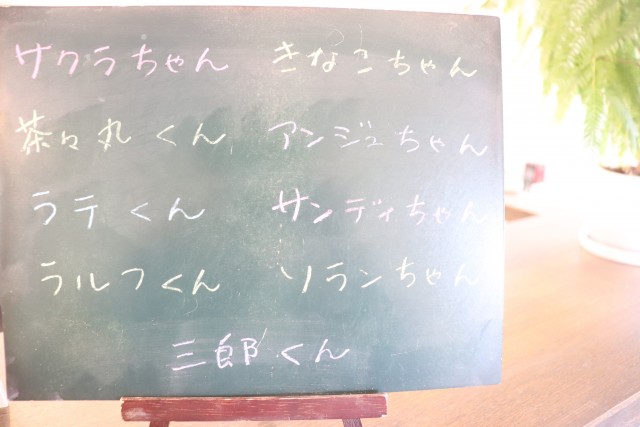 サクラちゃん きなこちゃん
茶々丸くん アンジュちゃん
ラテくん サンディちゃん
ラルフくん ソランちゃん
三郎くん